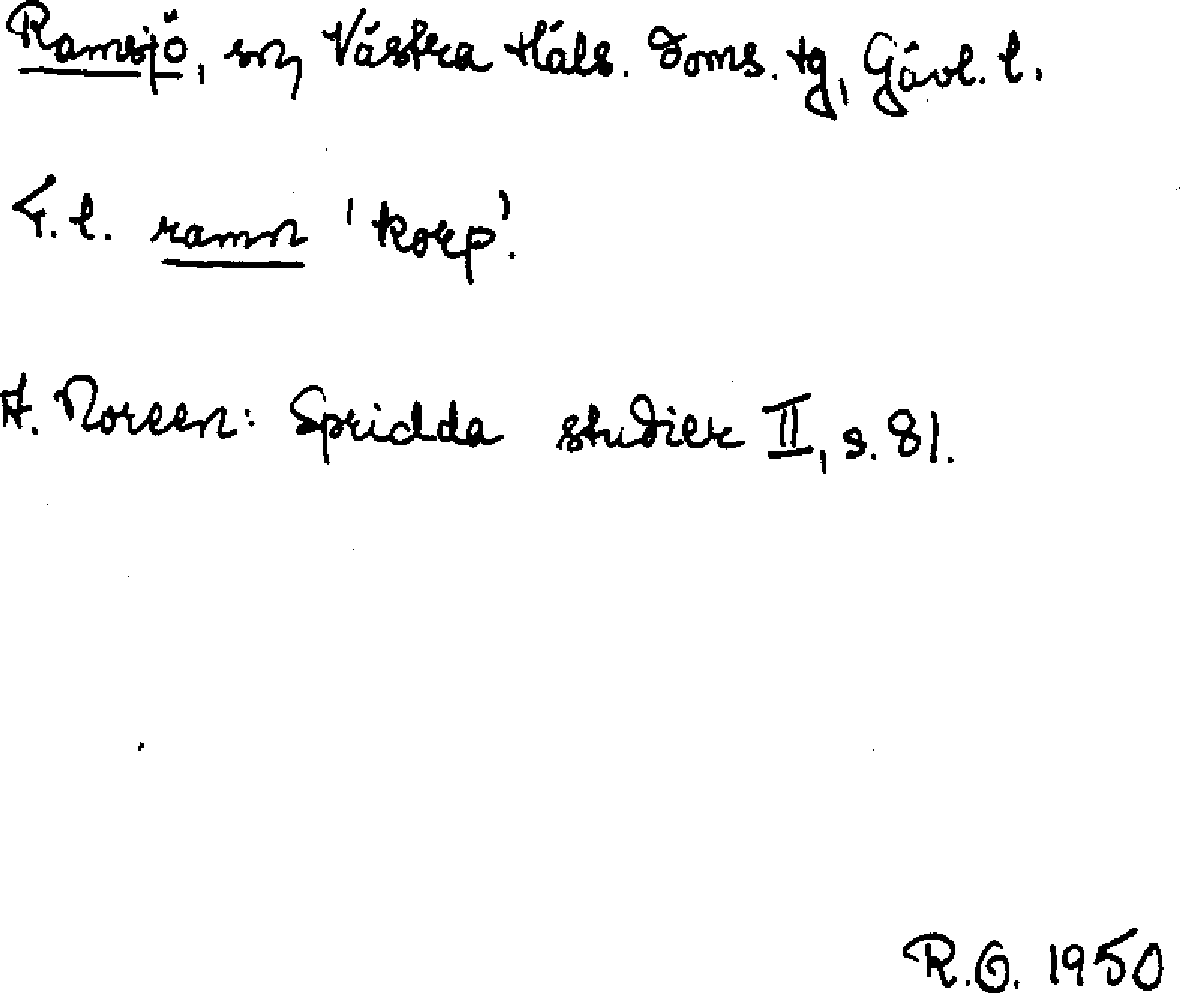 Ramsjö, sn, Västra Häls. doms. tg, Gävl. l.
F. l. ramn 'korp'.
A. Noreen: Spridda studier II, s. 81.
R.G. 1950